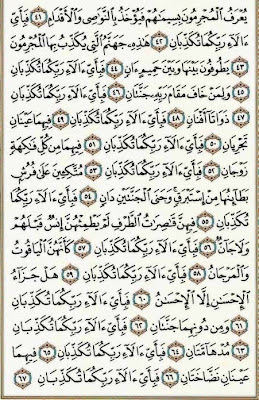 يُعْرَفُ ٱلْمُجْرِمُونَ بِسِيمَٰهُمْ فَيُؤْخَذُ بِٱلنَّوَٰصِى وَٱلْأَقْدَامِ ٤١ فَبِأَىِّ
ءَالَآءِ رَبِّكُمَا تُكَذِّبَانِ ٤٢ هَٰذِهِۦ جَهَنَّمُ ٱلَّتِى يُكَذِّبُ بِهَا ٱلْمُجْرِمُونَ
٤٣ يَطُوفُونَ بَيْنَهَا وَبَيْنَ حَمِيمٍ ءَانٍ ٤٤ فَبِأَىِّ ءَالَآءِ رَبِّكُمَا تُكَذِّبَانِ
٤٥ وَلِمَنْ خَافَ مَقَامَ رَبِّهِۦ جَنَّتَانِ ٤٦ فَبِأَىِّ ءَالَآءِ رَبِّكُمَا تُكَذِّبَانِ
٤٧ ذَوَاتَآ أَفْنَانٍ ٤٨ فَبِأَىِّ ءَالَآءِ رَبِّكُمَا تُكَذِّبَانِ ٤٩ فِيهِمَا عَيْنَانِ
تَجْرِيَانِ ٥٠ فَبِأَىِّ ءَالَآءِ رَبِّكُمَا تُكَذِّبَانِ ٥١ فِيهِمَا مِن كُلِّ فَٰكِهَةٍ
زَوْجَانِ ٥٢ فَبِأَىِّ ءَالَآءِ رَبِّكُمَا تُكَذِّبَانِ ٥٣ مُتَّكِـِٔينَ عَلَىٰ فُرُشٍۭ
بَطَآئِنُهَا مِنْ إِسْتَبْرَقٍ وَجَنَى ٱلْجَنَّتَيْنِ دَانٍ ٥٤ فَبِأَىِّ ءَالَآءِ رَبِّكُمَا
تُكَذِّبَانِ ٥٥ فِيهِنَّ قَٰصِرَٰتُ ٱلطَّرْفِ لَمْ يَطْمِثْهُنَّ إِنسٌ قَبْلَهُمْ
وَلَا جَآنٌّ ٥٦ فَبِأَىِّ ءَالَآءِ رَبِّكُمَا تُكَذِّبَانِ ٥٧ كَأَنَّهُنَّ ٱلْيَاقُوتُ
وَٱلْمَرْجَانُ ٥٨ فَبِأَىِّ ءَالَآءِ رَبِّكُمَا تُكَذِّبَانِ ٥٩ هَلْ جَزَآءُ
ٱلْإِحْسَٰنِ إِلَّا ٱلْإِحْسَٰنُ ٦٠ فَبِأَىِّ ءَالَآءِ رَبِّكُمَا تُكَذِّبَانِ
٦١ وَمِن دُونِهِمَا جَنَّتَانِ ٦٢ فَبِأَىِّ ءَالَآءِ رَبِّكُمَا تُكَذِّبَانِ
٦٣ مُدْهَآمَّتَانِ ٦٤ فَبِأَىِّ ءَالَآءِ رَبِّكُمَا تُكَذِّبَانِ ٦٥ فِيهِمَا
عَيْنَانِ نَضَّاخَتَانِ ٦٦ فَبِأَىِّ ءَالَآءِ رَبِّكُمَا تُكَذِّبَانِ ٦٧